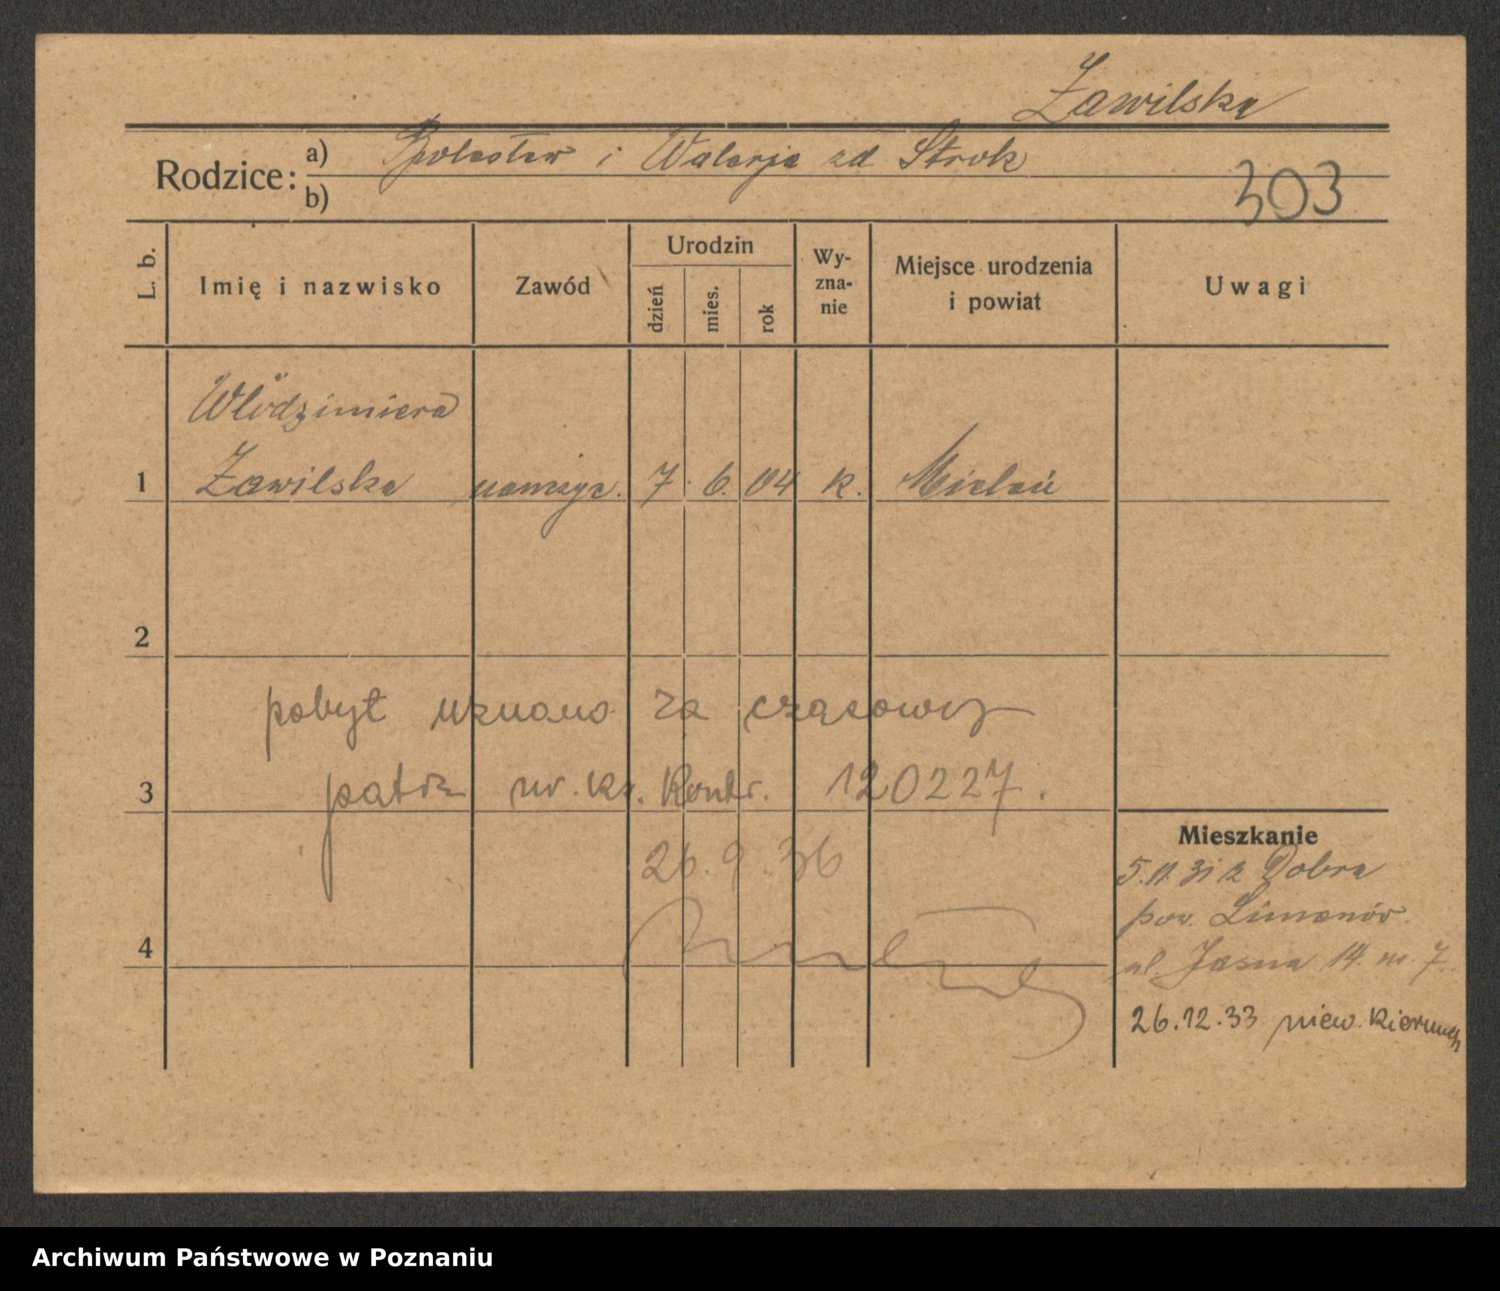 Zawilska
Rodzice:
a) Bolesław i Walerja zd Strok
b)
303
L. b.
Imię i nazwisko
Zawód
Urodzin
dzień
mies.
rok
Wy-
zna-
nie
Miejsce urodzenia
i powiat
Uwagi
Włodzimiera
1 Zawilska nauczyc. 7. 6. 04 k. Mielań
2
pobyt uznano za czasowy
3 patrz nr. kr. Kontr. 120227.
26.9.36
4
Mieszkanie
5.11.31 z Dobra
pow. Limanów.
ul. Jasna 14. m. 7.
26.12.33 niew. kierunek
Archiwum Państwowe w Poznaniu